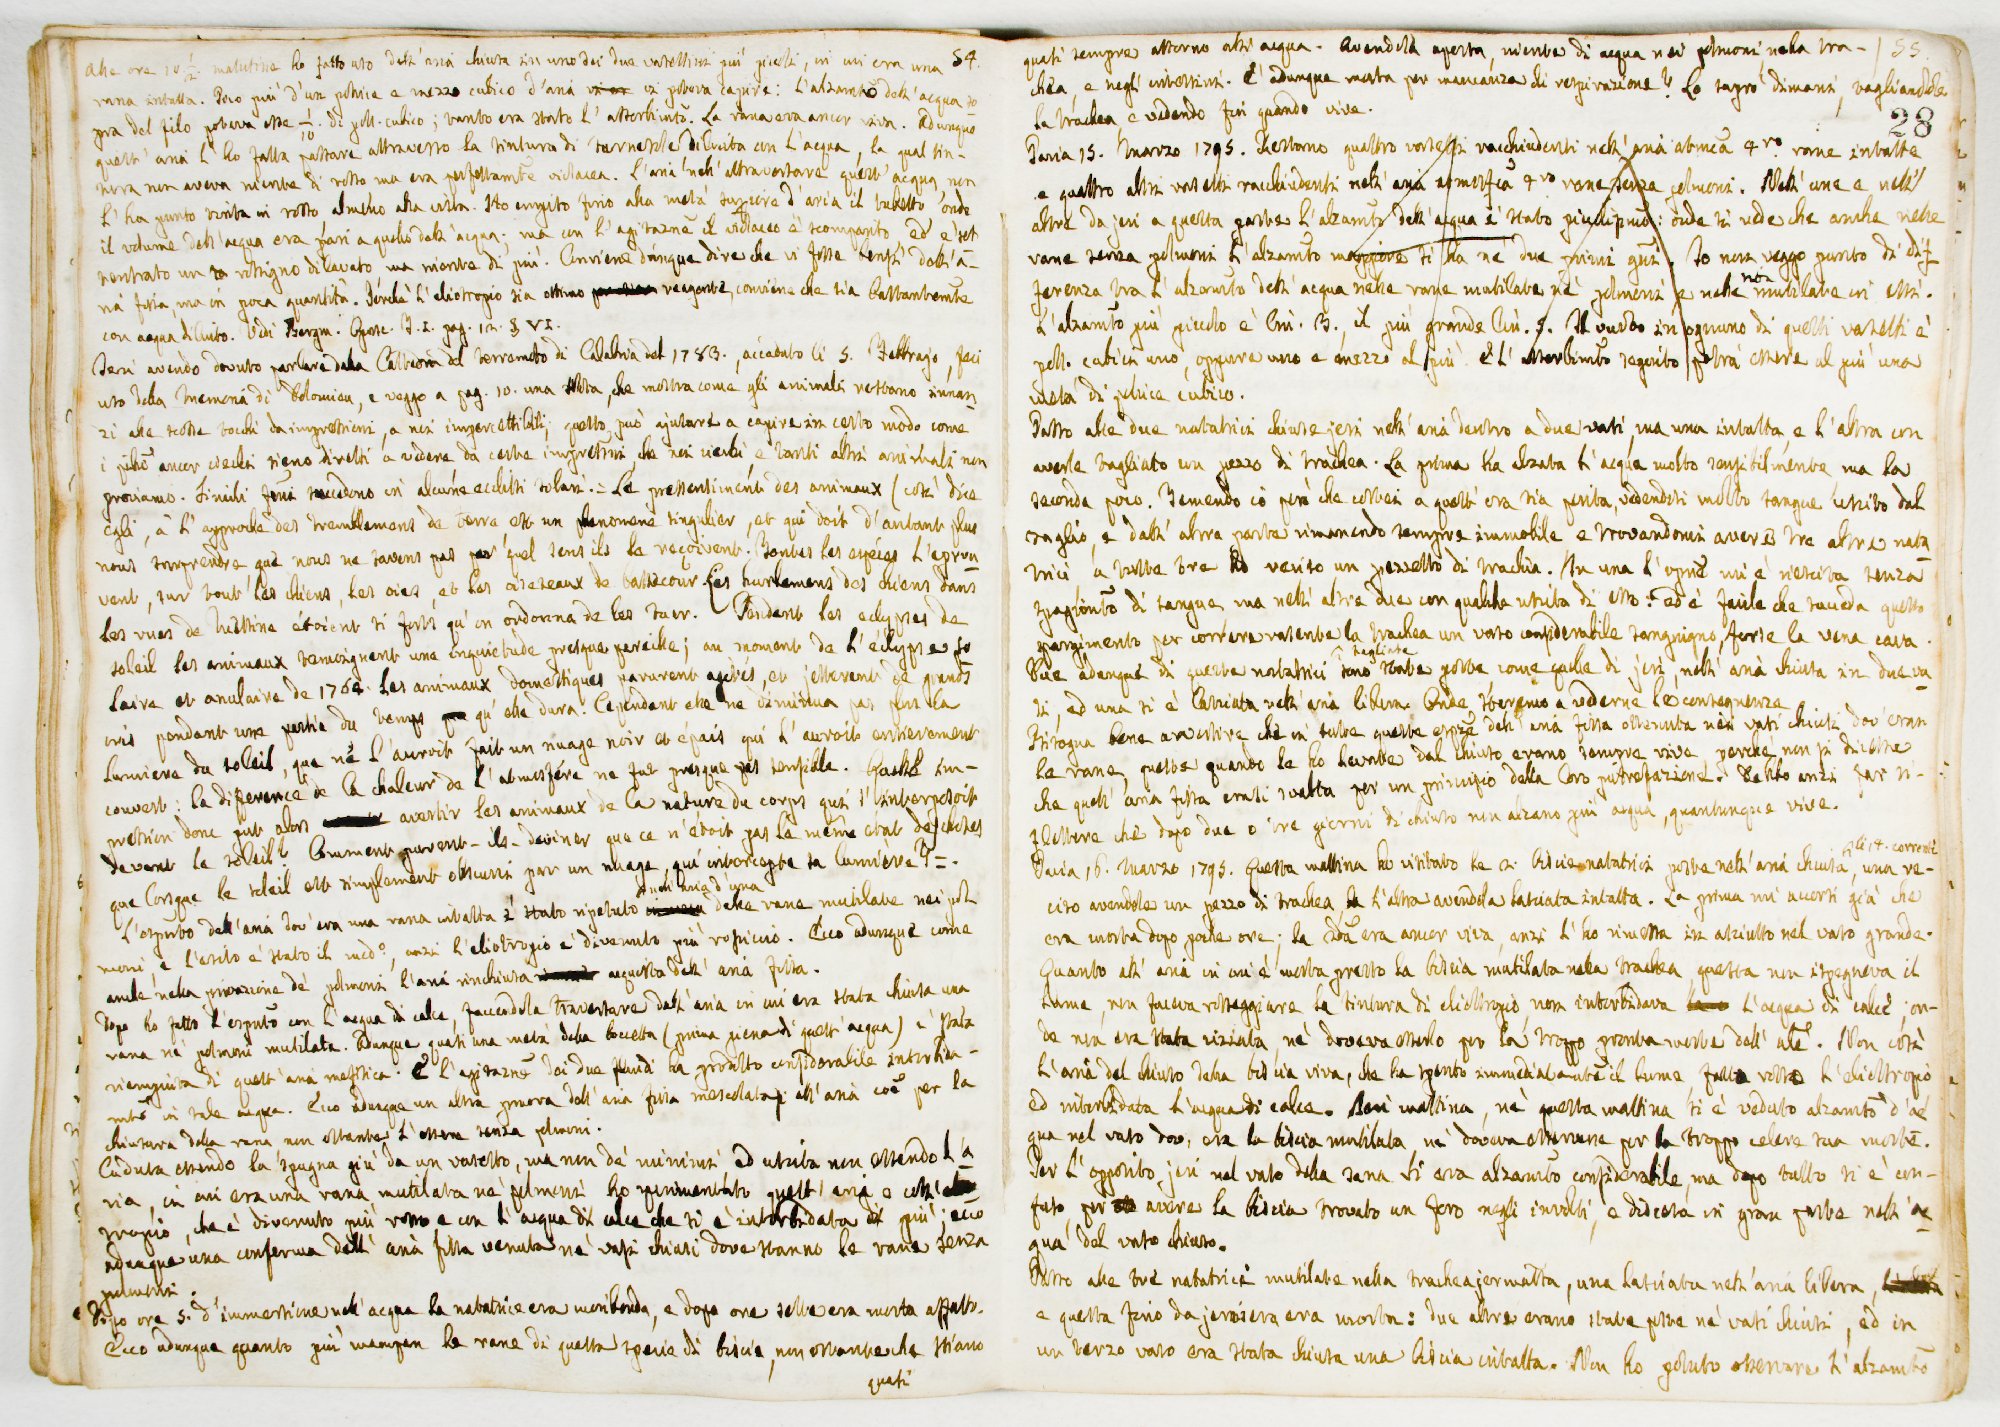 54.
Alle ore 10 1/2 matutine ho fatto uso dell' aria chiusa in uno dei due vasettini più piccoli, in cui era una
rana intatta. Poco più d'un pollice e mezzo cubico d'aria vi potea capire: l'alzamto dell'acqua so
pra del filo poteva esse 1/10 di poll. cubico; tanto era stato l'assorbimto. La rana era ancor viva. Adunque
quest' aria l'ho fatta passare attraverso la tintura di tornesole diluita con l'acqua, la qual tin-
tura non aveva niente di rosso ma era perfettamte violacea. L'aria nell' attraversare quest' acqua non
l'ha punto virata in rosso almeno alla vista. Ho empito fino alla metà d'aria il tubetto onde
il volume dell'acqua era pari a quello dell' acqua; ma con l'agitazne il violaceo è scomparito ed è sot
tentrato un rossigno dilavato ma niente di più. Conviene dunque dire che vi fosse bensì dell'a-
ria fissa, ma in poca quantità. Perchè l'eliotropio sia ottimo reagente, conviene che sia bastantemte
con acqua diluito. Vedi Bergm. Opusc. T. I. pag. 12. § VI.
Jeri avendo dovuto parlare dalla Cattedra del terremoto di Calabria del 1783., accaduto li 5. Febbrajo, feci
uso della Memoria di Dolomieu, e veggo a pag. 10. una nota, che mostra come gli animali restano innan
zi alle scosse tocchi da impressioni, a noi impercettibili; questo può ajutare a capire in certo modo come
i pipi ancor ciechi sieno diretti a vedere da certe impressni, che noi ciechi, e tanti altri animali non
proviamo. Simili fenì succedono in alcune ecclissi solari. = Le pressentiment des animaux (così dice
egli, à l'approche des tremblemens de terre est un phenomene singulier, et qui doit d'autant plus
nous surprendre que nous ne savons pas par quel sens ils le reçoivent. Toutes les especes l'eprou
vent, sur tout les chiens, les oies, et les oiseaux de bassecour. Les hurlemens des chiens dans
les rues de Messine étoient si forts qu'on ordonna de les tuer. Pendant les eclypses de
soleil les animaux temoignent une inquietude presque pareille; au moment de l'éclypse so
laire et anulaire de 1764. les animaux domestiques parurent agités, et jetterent de grands
cris pendant une partie du temps qu'elle dura. Cependant elle ne diminua pas plus la
lumiere du soleil, que ne l'auroit fait un nuage noir et épais qui l'auroit entierement
couvert: la difference de la chaleur de l'atmosfére ne fut presque pas sensible. Quelle im-
pression donc put alors avertir les animaux de la nature du corps qui s'interposoit
devant le soleil? Comment purent-ils deviner que ce n'étoit pas le même etat de choses
que lorsque le soleil est simplement obscurci par un nuage, qui intercepte sa lumière? =.
L'esperto dell' aria dov' era una rana intatta è stato ripetuto nell' aria d'una delle rane mutilate nei pol
moni, e l'esito è stato il medo, anzi l'eliotropio è divenuto più rossiccio. Ecco adunque come
anche nella privazione de' polmoni l'aria rinchiusa acquista dell' aria fissa.
Dopo ho fatto l'esperto con l'acqua di calce, facendola traversare dall' aria in cui era stata chiusa una
rana ne' polmoni mutilata. Adunque quasi una metà della boccetta (prima piena di quest' acqua) è stata
riempiuta di quest' aria mefitica. E l'agitazne dei due fluidi ha prodotto considerabile intorbida-
mto in tale acqua. Ecco adunque un altra prova dell' aria fissa mescolatasi all' aria coe per la
chiusura della rana non ostante l'essere senza polmoni.
Caduta essendo la spugna giù da un vasetto, ma non da' minimi, ed uscita non essendo l'a
ria, in cui era una rana mutilata ne' polmoni ho sperimentato quest' aria e coll' elio
tropio, che è divenuto più rosso e con l'acqua di calce che si è intorbidata di più; ecco
adunque una conferma dell' aria fissa venuta ne' vasi chiusi dove stanno le rane senza
polmoni.
Dopo ore 5. d'immersione nell'acqua la natatrice era moribonda, e dopo ore sette era morta affatto.
Ecco adunque quanto più muojon le rane di questa spezie di biscie, non ostante che stiano
quasi
55.
28
quasi sempre attorno all' acqua. Avendola aperta, niente di acqua nei polmoni, nella tra-
chea, e negli intestini. È adunque morta per mancanza di respirazione? Lo saprò dimani, tagliandole
la trachea, e vedendo fin quando vive.
Pavia 15. Marzo 1795. Restano quattro vasetti racchiudenti nell' aria atmca 4ro rane intatte
e quattro altri vasetti racchiudenti nell' aria atmosfca 4ro rane senza polmoni. Nell' une e nell'
altre da jeri a questa parte l'alzamto dell'acqua è stato: onde si vede che anche nelle
rane senza polmoni l'alzamto maggiore si ha ne' due primi gni. Io non veggo punto di dif
ferenza tra l'alzamto dell' acqua nelle rane mutilate ne' polmoni e nelle non mutilate in essi.
L'alzamto più piccolo è lin. 3., il più grande lin. 5. Il vuoto in ognuno di questi vasetti è
poll. cubici uno, oppure uno e mezzo al più. E l'assorbimto seguito potrà essere al più una
metà di pollice cubico.
Passo alle due natatrici chiuse jeri nell' aria dentro a due vasi, ma una intatta, e l'altra con
averle tagliato un pezzo di trachea. La prima ha alzata l'acqua molto sensibilmente ma la
seconda poco. Temendo io però che costei a quest' ora sia perita, vedendosi molto sangue uscito dal
taglio, e dall' altra parte rimanendo sempre immobile e trovandomi avere tre altre nata
trici a tutte tre ho reciso un pezzetto di trachea. In una l'opne mi è riescita senza
spargimto di sangue, ma nell' altre due con qualche uscita di esso: ed è facile che succeda questo
spargimento per correre rasente la trachea un vaso considerabile sanguigno, forse la vena cava.
Due adunque di queste natatrici tagliate sono state poste come quelle di jeri, nell' aria chiusa in due va
si, ed una si è lasciata nell' aria libera. Onde staremo a vederne le conseguenze.
Bisogna bene avvertire che in tutte queste espze dell' aria fissa ottenuta nei vasi chiusi dov' eran
le rane, queste quando le ho levate dal chiuso erano sempre vive perchè non si dicesse
che quell' aria fissa erasi svolta per un principio della loro putrefazione. Debbo anzi far ri-
flettere che dopo due o tre giorni di chiuso non alzano più acqua, quantunque vive.
Pavia 16. Marzo 1795. Questa mattina ho visitato le 2. biscie natatrici poste nell' aria chiusa li 14. corrente, una re-
ciso avendole un pezzo di trachea, l'altra avendola lasciata intatta. La prima mi accorsi già che
era morta dopo poche ore; la 2da era ancor viva, anzi l'ho rimessa in asciutto nel vaso grande.
Quanto all' aria in cui è morta presto la biscia mutilata nella trachea, questa non ispegneva il
lume, non faceva rosseggiare la tintura di eliotropio, non intorbidava l'acqua di calce; on-
de non era stata viziata, nè doveva esserlo per la troppo pronta morte dell' ale. Non così
l'aria del chiuso della biscia viva, che ha spento immediatamte il lume, fatto rosso l'eliotropio
ed intorbidata l'acqua di calce. Jeri mattina, nè questa mattina si è veduto alzamto d'ac
qua nel vaso dov' era la biscia mutilata nè doveva osservarsi per la troppo celere sua morte.
Per l'opposito jeri nel vaso della sana vi era alzamto considerabile, ma dopo tutto si è con-
fuso, per avere la biscia trovato un foro negli involti, e discesa in gran parte nell' ac
qua del vaso chiuso.
Passo alle tre natatrici mutilate nella trachea jermattina, una lasciata nell' aria libera,
e questa fino da jersera era morta: due altre erano state poste ne' vasi chiusi, ed in
un terzo vaso era stata chiusa una biscia intatta. Non ho potuto osservare l'alzamto